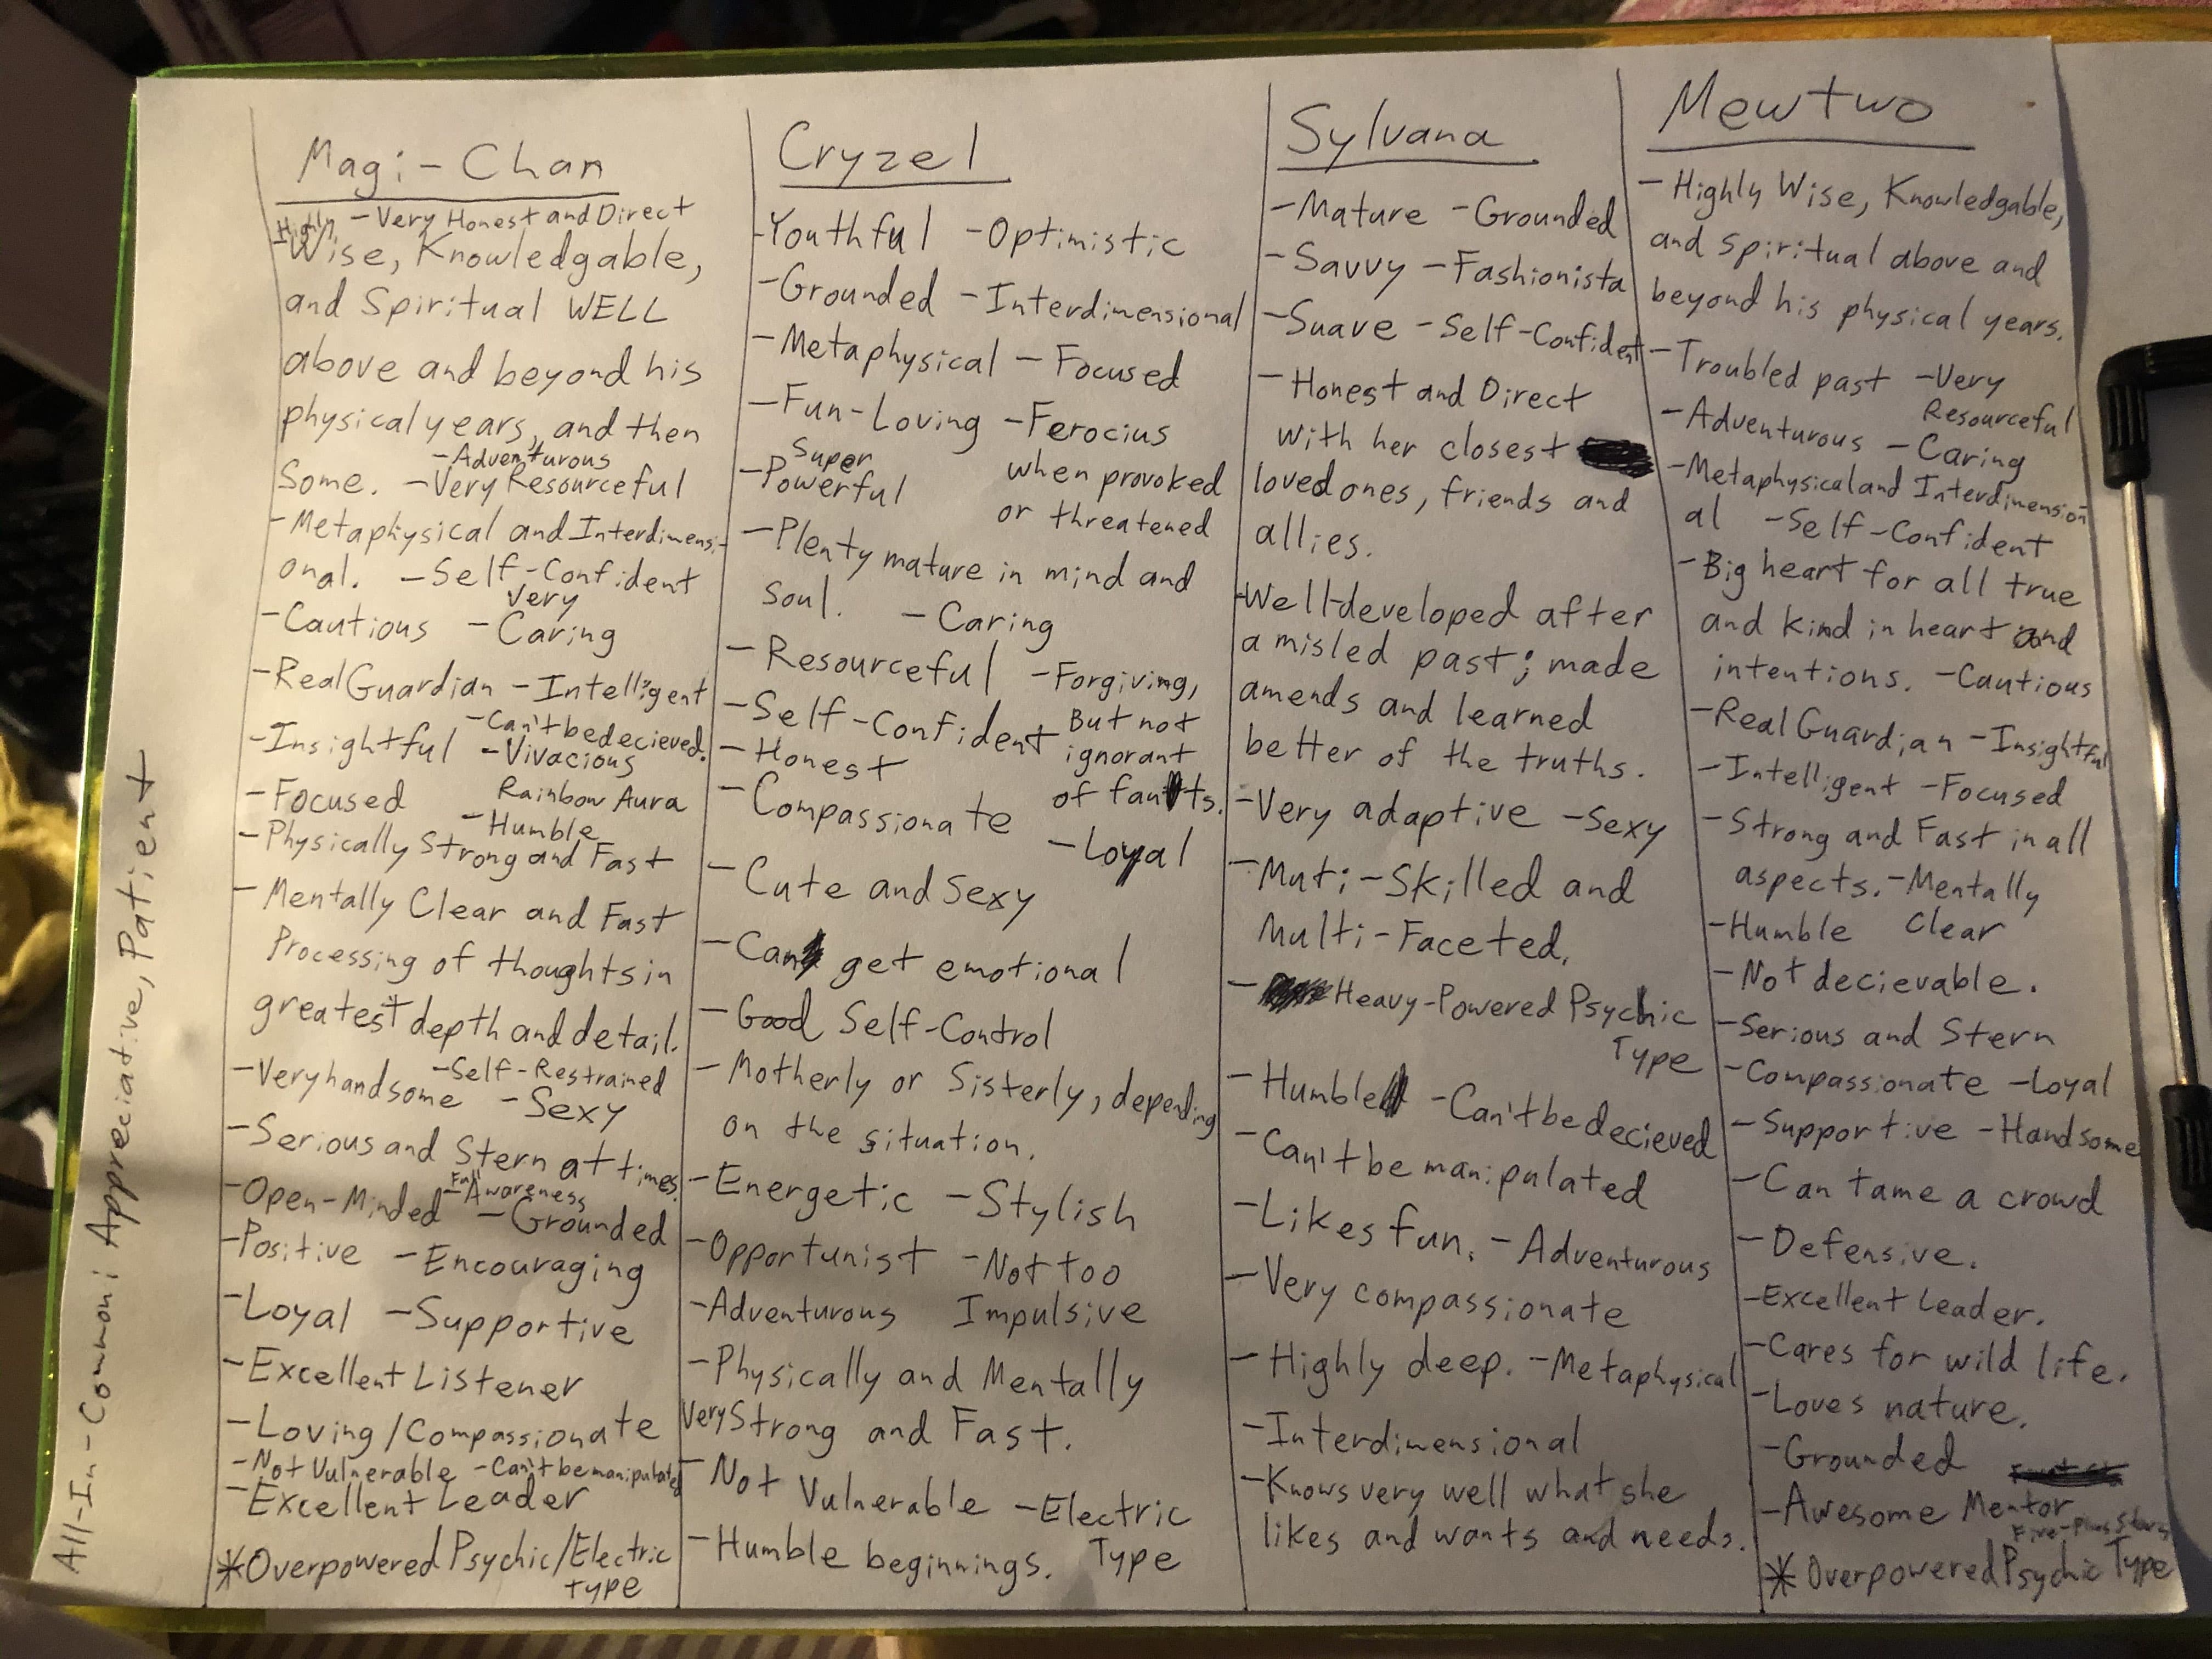 All-In-Common: Appreciative, Patient
Magi-Chan
Highly -Very Honest and Direct
Wise, Knowledgable,
and Spiritual WELL
above and beyond his
physical years, and then
-Adventurous
Some. -Very Resourceful
-Metaphysical and Interdimensi-
onal. -Self-Confident
very
-Cautious -Caring
-Real Guardian -Intelligent
-Can't be decieved.
-Insightful -Vivacious
-Focused Rainbow Aura
-Humble
-Physically Strong and Fast
-Mentally Clear and Fast
Processing of thoughts in
greatest depth and detail.
-Self-Restrained
-Very handsome -Sexy
-Serious and Stern at times.
Full
-Awareness
-Open-Minded -Grounded
-Positive -Encouraging
-Loyal -Supportive
-Excellent Listener
-Loving/Compassionate
-Not Vulnerable -Can't be manipulated
-Excellent Leader
*Overpowered Psychic/Electric
type
Cryzel
-Youthful -Optimistic
-Grounded -Interdimensional
-Metaphysical -Focused
-Fun-Loving -Ferocius
when provoked
or threatened
Super
-Powerful
-Plenty mature in mind and
soul. -Caring
-Resourceful -Forgiving,
But not
ignorant
of faults.
-Self-Confident
-Honest
-Compassionate
-Loyal
-Cute and Sexy
-Can get emotional
-Good Self-Control
-Motherly or Sisterly, depending
on the situation.
-Energetic -Stylish
-Opportunist -Not too
Impulsive
-Adventurous
-Physically and Mentally
Very Strong and Fast.
-Not Vulnerable -Electric
Type
-Humble beginnings.
Sylvana
-Mature -Grounded
-Savvy -Fashionista
-Suave -Self-Confident
-Honest and Direct
with her closest
loved ones, friends and
allies.
-Well-developed after
a misled past; made
amends and learned
better of the truths.
-Very adaptive -Sexy
-Muti-Skilled and
Multi-Faceted.
-Heavy-Powered Psychic
Type
-Humble -Can't be decieved
-Can't be manipulated
-Likes fun. -Adventurous
-Very compassionate
-Highly deep. -Metaphysical
-Interdimensional
-Knows very well what she
likes and wants and needs.
Mewtwo
-Highly Wise, Knowledgable,
and spiritual above and
beyond his physical years.
-Troubled past -Very
Resourceful
-Adventurous -Caring
-Metaphysical and Interdimension
al -Self-Confident
-Big heart for all true
and kind in heart and
intentions. -Cautious
-Real Guardian -Insightful
-Intelligent -Focused
-Strong and Fast in all
aspects. -Mentally
Clear
-Humble
-Not decievable.
-Serious and Stern
-Compassionate -Loyal
-Supportive -Handsome
-Can tame a crowd
-Defensive.
-Excellent Leader.
-Cares for wild life.
-Loves nature.
-Grounded
-Awesome Mentor
Five-Plus Stars
*Overpowered Psychic Type